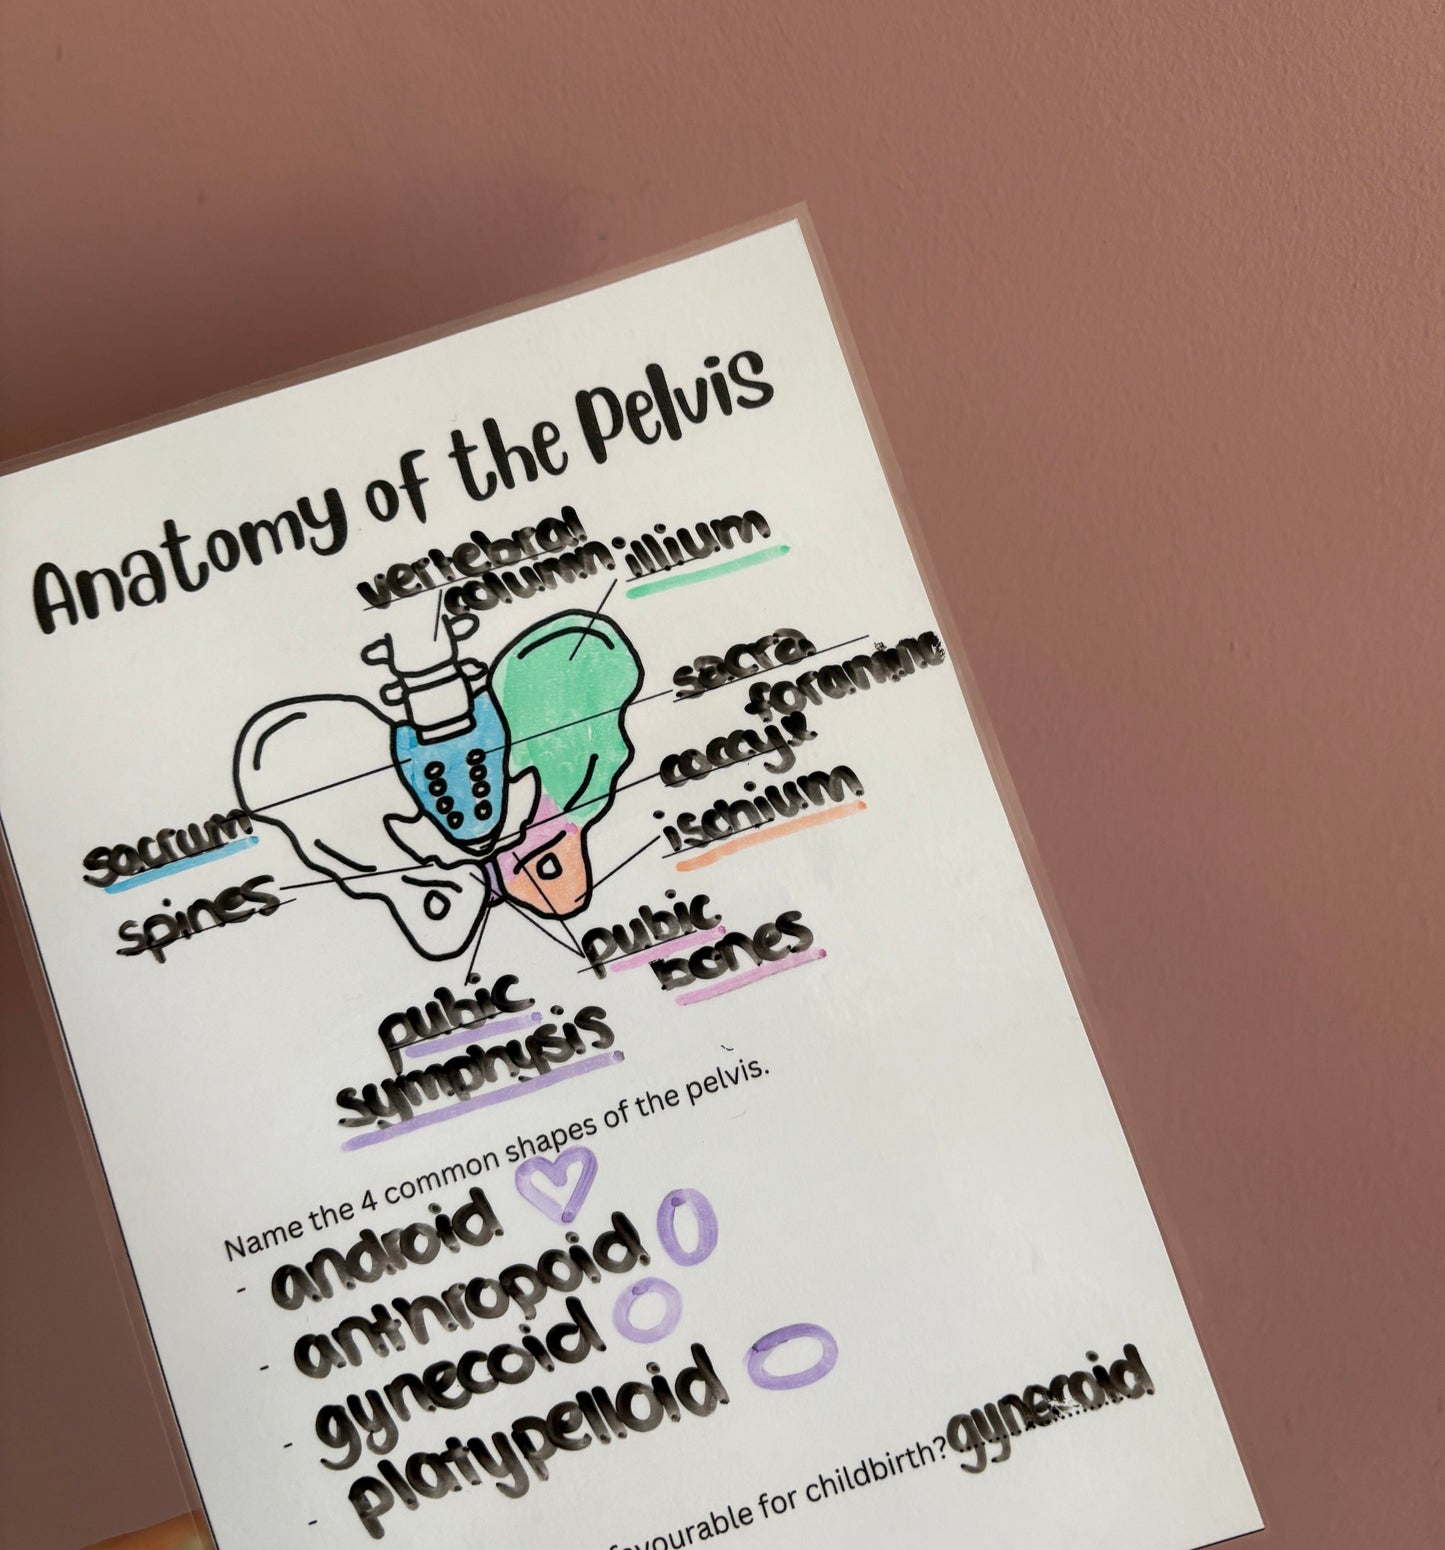 Anatomy of the Pelvis
vertebral
column
illium
sacra
foramine
coccyx
ischium
sacrum
spines
pubic
bones
pubic
symphysis
Name the 4 common shapes of the pelvis.
- android
- anthropoid
- gynecoid
- platypelloid
favourable for childbirth? gynecoid